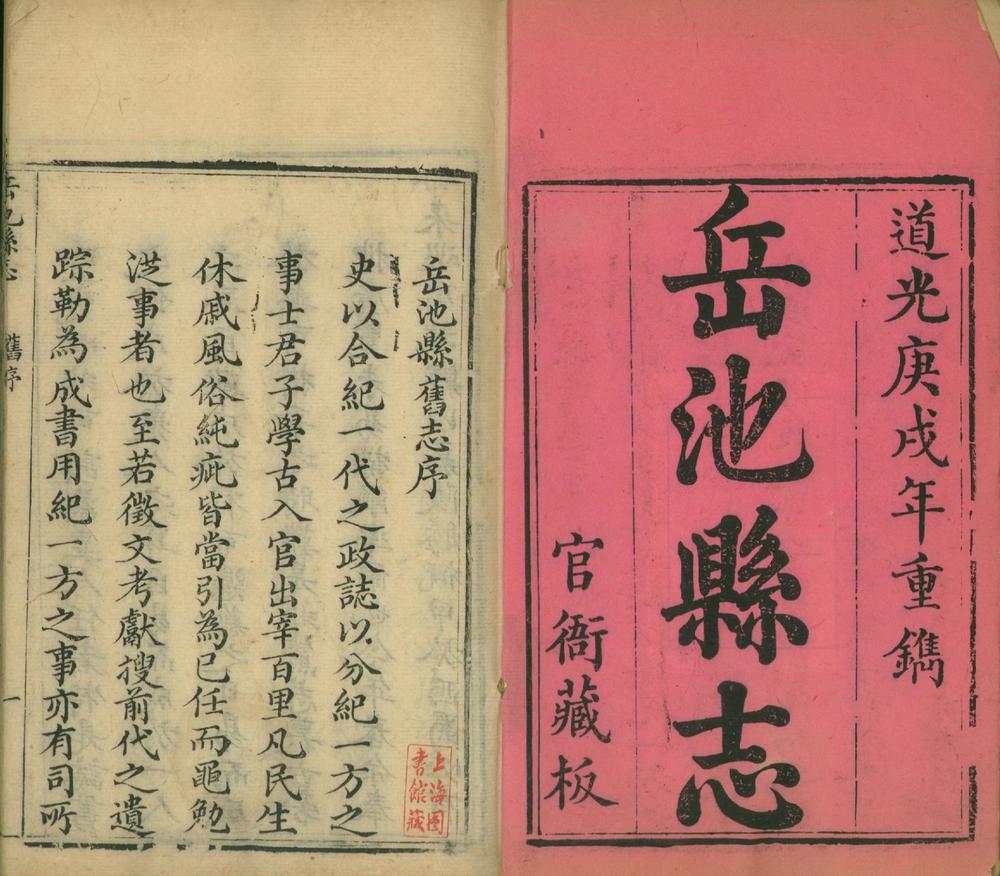 道光庚戌年重鐫
岳池縣志
官衙藏板
岳池縣舊志序
史以合紀一代之政誌以分紀一方之
事士君子學古入官出宰百里凡民生
休戚風俗純疵皆當引為已任而黽勉
涖事者也至若徵文考獻搜前代之遺
踪勒為成書用紀一方之事亦有司所
上海圖
書館藏
岳池縣志
舊序
一